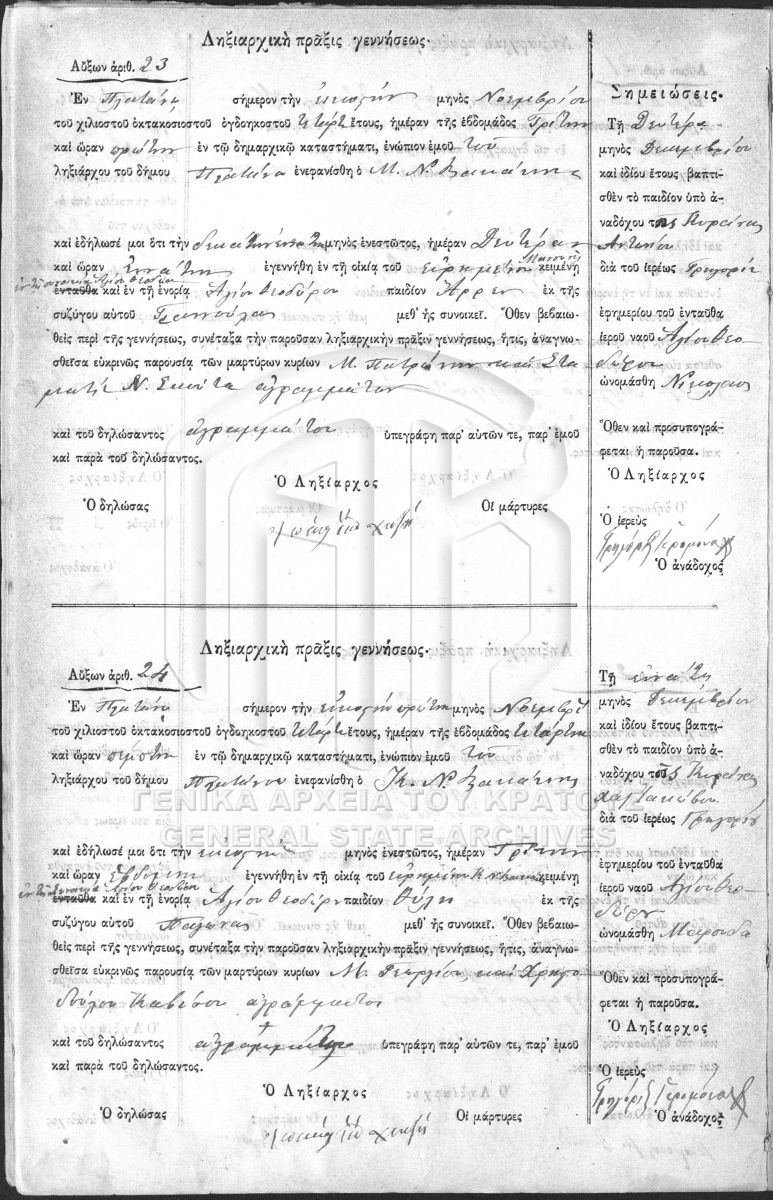 Ληξιαρχικὴ πρᾶξις γεννήσεως.
Αὔξων ἀριθ. 23
Ἐν Πλατάνῳ σήμερον τὴν εἰκοστὴν μηνὸς Νοεμβρίου
τοῦ χιλιοστοῦ ὀκτακοσιοστοῦ ὀγδοηκοστοῦ τετάρτ ἔτους, ἡμέραν τῆς ἑβδομάδος Τρίτην
καὶ ὥραν πρώτην ἐν τῷ δημαρχικῷ καταστήματι, ἐνώπιον ἐμοῦ τοῦ
ληξιάρχου τοῦ δήμου Πλατάνου ἐνεφανίσθη ὁ Μ. Ν.
καὶ ἐδήλωσέ μοι ὅτι τὴν δεκάτην ἐνάτην μηνὸς ἐνεστῶτος, ἡμέραν Δευτέραν
καὶ ὥραν ἐνάτην ἐγεννήθη ἐν τῇ οἰκίᾳ τοῦ εἰρημένου κειμένῃ
ἐνταῦθα καὶ ἐν τῇ ἐνορίᾳ Ἁγίου Θεοδώρου παιδίον Ἄρρεν ἐκ τῆς
συζύγου αὐτοῦ μεθ' ἧς συνοικεῖ. Ὅθεν βεβαιω-
θεὶς περὶ τῆς γεννήσεως, συνέταξα τὴν παροῦσαν ληξιαρχικὴν πρᾶξιν γεννήσεως, ἥτις, ἀναγνω-
σθεῖσα εὐκρινῶς παρουσίᾳ τῶν μαρτύρων κυρίων Μ. καὶ Στα
ματίου Ν. ἀγραμμάτων
καὶ τοῦ δηλώσαντος ἀγραμμάτου ὑπεγράφη παρ' αὐτῶν τε, παρ' ἐμοῦ
καὶ παρὰ τοῦ δηλώσαντος.
Ὁ Ληξίαρχος
Ὁ δηλώσας Οἱ μάρτυρες
Σημειώσεις.
Τῇ Δευτέρᾳ
μηνὸς Δεκεμβρίου
καὶ ἰδίου ἔτους βαπτι-
σθὲν τὸ παιδίον ὑπὸ ἀ-
ναδόχου τῆς Κυράνας
Ἀντωνίου
διὰ τοῦ ἱερέως Γρηγορίου
ἐφημερίου τοῦ ἐνταῦθα
ἱεροῦ ναοῦ Ἁγίου Θεο-
δώρου
ὠνομάσθη Νικόλαος
Ὅθεν καὶ προσυπογρά-
φεται ἡ παροῦσα.
Ὁ Ληξίαρχος
Ὁ ἱερεὺς
Γρηγόριος Ἱερομόναχος
Ὁ ἀνάδοχος
Ληξιαρχικὴ πρᾶξις γεννήσεως.
Αὔξων ἀριθ. 24
Ἐν Πλατάνῳ σήμερον τὴν εἰκοστὴν πρώτην μηνὸς Νοεμβρί
τοῦ χιλιοστοῦ ὀκτακοσιοστοῦ ὀγδοηκοστοῦ τετάρτ ἔτους, ἡμέραν τῆς ἑβδομάδος τετάρτην
καὶ ὥραν πέμπτην ἐν τῷ δημαρχικῷ καταστήματι, ἐνώπιον ἐμοῦ τοῦ
ληξιάρχου τοῦ δήμου Πλατάνου ἐνεφανίσθη ὁ Ν.
ΓΕΝΙΚΑ ΑΡΧΕΙΑ ΤΟΥ ΚΡΑΤΟΥΣ
GENERAL STATE ARCHIVES
καὶ ἐδήλωσέ μοι ὅτι τὴν εἰκοστὴν μηνὸς ἐνεστῶτος, ἡμέραν Τρίτην
καὶ ὥραν Ἑβδόμην ἐγεννήθη ἐν τῇ οἰκίᾳ τοῦ εἰρημένου κειμένῃ
ἐνταῦθα καὶ ἐν τῇ ἐνορίᾳ Ἁγίου Θεοδώρ παιδίον Θῆλυ ἐκ τῆς
συζύγου αὐτοῦ μεθ' ἧς συνοικεῖ. Ὅθεν βεβαιω-
θεὶς περὶ τῆς γεννήσεως, συνέταξα τὴν παροῦσαν ληξιαρχικὴν πρᾶξιν γεννήσεως, ἥτις, ἀναγνω-
σθεῖσα εὐκρινῶς παρουσίᾳ τῶν μαρτύρων κυρίων Μ. Γεωργίου καὶ Χρηστο
δούλου ἀγράμματοι
καὶ τοῦ δηλώσαντος ἀγραμμάτου ὑπεγράφη παρ' αὐτῶν τε, παρ' ἐμοῦ
καὶ παρὰ τοῦ δηλώσαντος.
Ὁ Ληξίαρχος
Ὁ δηλώσας Οἱ μάρτυρες
Τῇ ἐνάτῃ
μηνὸς Δεκεμβρίου
καὶ ἰδίου ἔτους βαπτι-
σθὲν τὸ παιδίον ὑπὸ ἀ-
ναδόχου τῆς Κυράνας
διὰ τοῦ ἱερέως Γρηγορίου
ἐφημερίου τοῦ ἐνταῦθα
ἱεροῦ ναοῦ Ἁγίου Θεο-
δώρου
ὠνομάσθη Μαρούδα
Ὅθεν καὶ προσυπογρά-
φεται ἡ παροῦσα.
Ὁ Ληξίαρχος
Ὁ ἱερεὺς
Γρηγόριος Ἱερομόναχος
Ὁ ἀνάδοχος